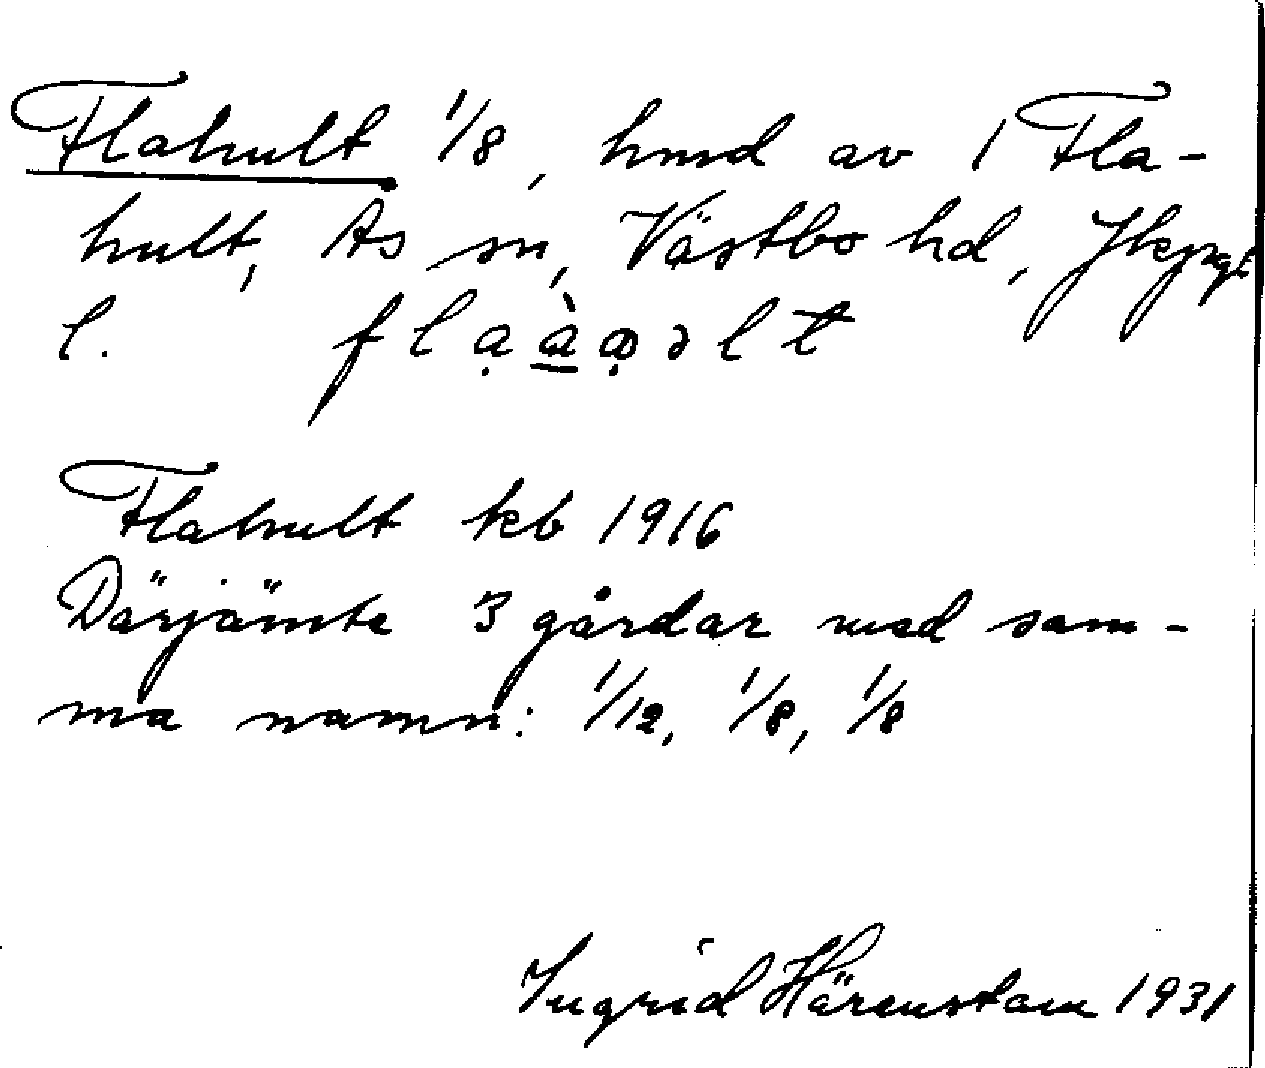 Flahult 1/8, hmd av 1 Fla-
hult, Ås sn, Västbo hd, Jkpgs
l.
Flahult kb 1916
Därjämte 3 gårdar med sam-
ma namn: 1/12, 1/8, 1/8
Ingrid Härenstam 1931